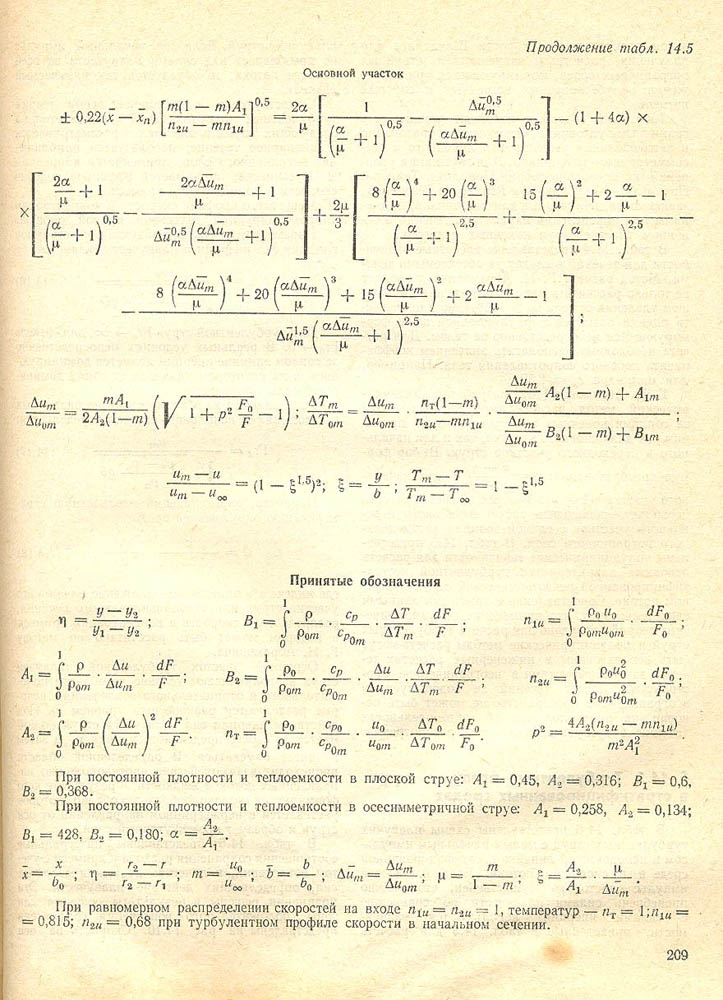 Продолжение табл. 14.5
Основной участок
± 0,22(x̄ — x̄ₙ) [m(1 — m)A₁ / (n₂ᵤ — mn₁ᵤ)]^0,5 = 2α/μ [1 / (α/μ + 1)^0,5 — Δū_m^0,5 / (αΔū_m/μ + 1)^0,5] — (1 + 4α) ×
× [(2α/μ + 1) / (α/μ + 1)^0,5 — (2αΔū_m/μ + 1) / (Δū_m^0,5 (αΔū_m/μ + 1)^0,5)] + 2μ/3 [(8 (α/μ)^4 + 20 (α/μ)^3) / (α/μ + 1)^2,5 + (15 (α/μ)^2 + 2 α/μ — 1) / (α/μ + 1)^2,5 —
— (8 (αΔū_m/μ)^4 + 20 (αΔū_m/μ)^3 + 15 (αΔū_m/μ)^2 + 2 αΔū_m/μ — 1) / (Δū_m^1,5 (αΔū_m/μ + 1)^2,5)];
Δu_m/Δu_0m = mA₁ / (2A₂(1—m)) (√(1 + p² F₀/F) — 1); ΔT_m/ΔT_0m = Δu_m/Δu_0m · n_т(1—m) / (n₂ᵤ—mn₁ᵤ) · (Δu_m/Δu_0m A₂(1 — m) + A₁m) / (Δu_m/Δu_0m B₂(1 — m) + B₁m);
(u_m — u) / (u_m — u_∞) = (1 — ξ^1,5)²; ξ = y/b; (T_m — T) / (T_m — T_∞) = 1 — ξ^1,5
Принятые обозначения
η = (y — y₂) / (y₁ — y₂); B₁ = ∫₀¹ ρ/ρ_0m · c_p/c_p0m · ΔT/ΔT_m · dF/F; n₁ᵤ = ∫₀¹ ρ₀u₀/(ρ_0m u_0m) · dF₀/F₀;
A₁ = ∫₀¹ ρ/ρ_0m · Δu/Δu_m · dF/F; B₂ = ∫₀¹ ρ₀/ρ_0m · c_p/c_p0m · Δu/Δu_m · ΔT/ΔT_m · dF/F; n₂ᵤ = ∫₀¹ ρ₀u₀²/(ρ_0m u²_0m) · dF₀/F₀;
A₂ = ∫₀¹ ρ/ρ_0m (Δu/Δu_m)² dF/F. n_т = ∫₀¹ ρ₀/ρ_0m · c_p0/c_p0m · u₀/u_0m · ΔT₀/ΔT_0m · dF₀/F₀. p² = 4A₂(n₂ᵤ — mn₁ᵤ) / (m²A₁²).
При постоянной плотности и теплоемкости в плоской струе: A₁ = 0,45, A₂ = 0,316; B₁ = 0,6,
B₂ = 0,368.
При постоянной плотности и теплоемкости в осесимметричной струе: A₁ = 0,258, A₂ = 0,134;
B₁ = 428, B₂ = 0,180; α = A₂/A₁.
x̄ = x/b₀; η = (r₂ — r) / (r₂ — r₁); m = u₀/u_∞; b̄ = b/b₀; Δū_m = Δu_m/Δu_0m; μ = m / (1 — m); ξ = A₂/A₁ · μ/Δū_m.
При равномерном распределении скоростей на входе n₁ᵤ = n₂ᵤ = 1, температур — n_т = 1; n₁ᵤ =
= 0,815; n₂ᵤ = 0,68 при турбулентном профиле скорости в начальном сечении.
209